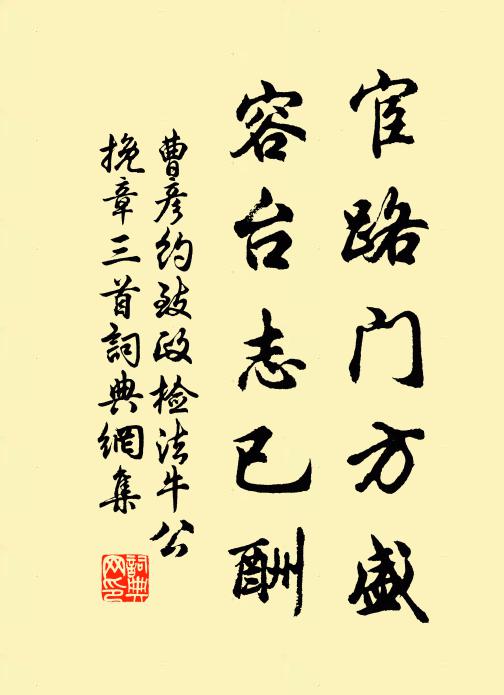 宦路门方盛
容台志已酬
曹彦约致政检法牛公
挽章三首詞典網集
詞典
网印